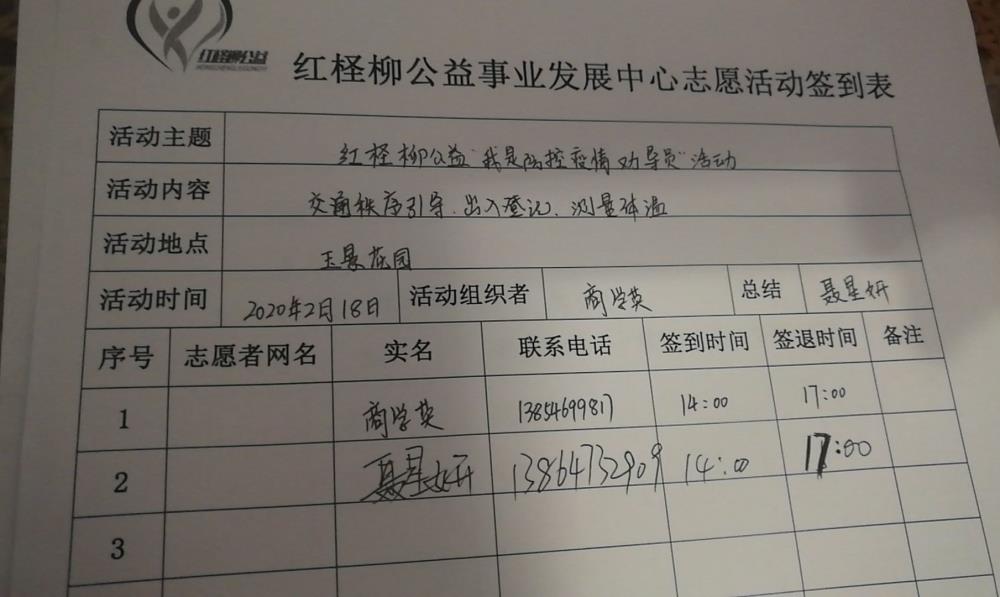 红柽柳公益
红柽柳公益事业发展中心志愿活动签到表
活动主题 红柽柳公益"我是防控疫情劝导员"活动
活动内容 交通秩序引导、出入登记、测量体温
活动地点 玉景花园
活动时间 2020年2月18日 活动组织者 商学英 总结 聂星妍
序号 志愿者网名 实名 联系电话 签到时间 签退时间 备注
1 商学英 13854699817 14:00 17:00
2 聂星妍 13864732909 14:00 17:00
3